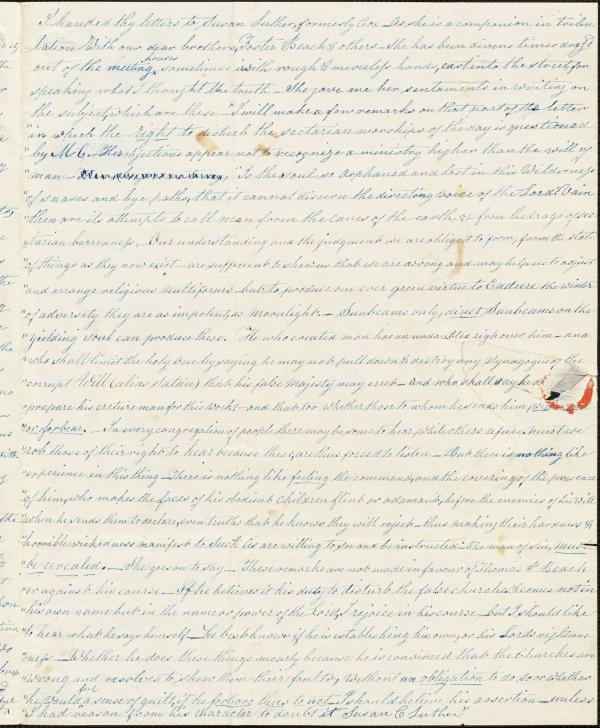 I handed thy letters to Susan Luther, formerly Cox - As she is a companion in tribu
lation With our dear brothers, Foster Beach & others - She has been divers times drag'd
out of the meeting houses, sometimes with rough & merciless hands, cast into the street, for
speaking what I thought the truth - She gave me her sentaments in writing on
the subject, which are these - "I will make a few remarks on that part of the letter
"in which the right to disturb the sectarian worships of the day is questioned
"by M C. Her objections appear not to recognize a ministry higher than the will of
"man - "Is the soul so orphaned and lost in this Wilderness
"of snares and bye paths, that it cannot discern the directing voice of the Lord? Vain
"then are its attempts to call men from the caves of the earth, or from the crags of sec
"tarian barrenness, Our understanding and the judgment we are obliged to form, from the state
"of things as they now exist - are sufficient to shew us that we are wrong and may help us to adjust
"and arrange religious multiforms - but to produce one ever green virtue to Endure the winter
"of adversity they are as impotent as Moonlight - Sunbeams only, direct Sunbeams on the
"yielding soul can produce these. He who created man has an undoubted right over him - and
"who shall limit the holy One by saying he may not pull down & destroy any Synagogue of the
"corrupt Will (alias Satan) that his false Majesty may erect - And who shall say he
"prepare his creature man for this work - and that too whether those to whom he sends him
"or forbear. - In every congregation of people there may be some to hear, while others refuse. Must we
"rob those of their right to hear because these, are thus forced to listen - But there is nothing like
"experience in this thing - There is nothing like feeling the command, and the covering of the presence
"of him, who makes the faces of his obedient children flint or adamant, before the enemies of his Will
"when he sends them to declare, even truths that he knows they will reject - thus making their hardness &
"horrible wickedness manifest to such as are willing to see and be instructed - The man of sin, must
"be revealed. - She goes on to say - These remarks are not made in favour of Thomas P Beach
"or against his course - If he believes it his duty to disturb the false churches & comes not in
"his own name but in the name or power of the Lord, I rejoice in his course - but I should like
"to hear what he says himself - he best knows if he is establishing his own, or his Lords righteous
"ness - Whether he does these things, mearly because he is convinced that the Churches are
"wrong and resolves to shew them their faults, without an obligation to do so or whether
"he would a sense of guilt, if he forbore thus to act - I should believe his assertion - unless
"I had reason from his character to doubt it Susan C Luther"